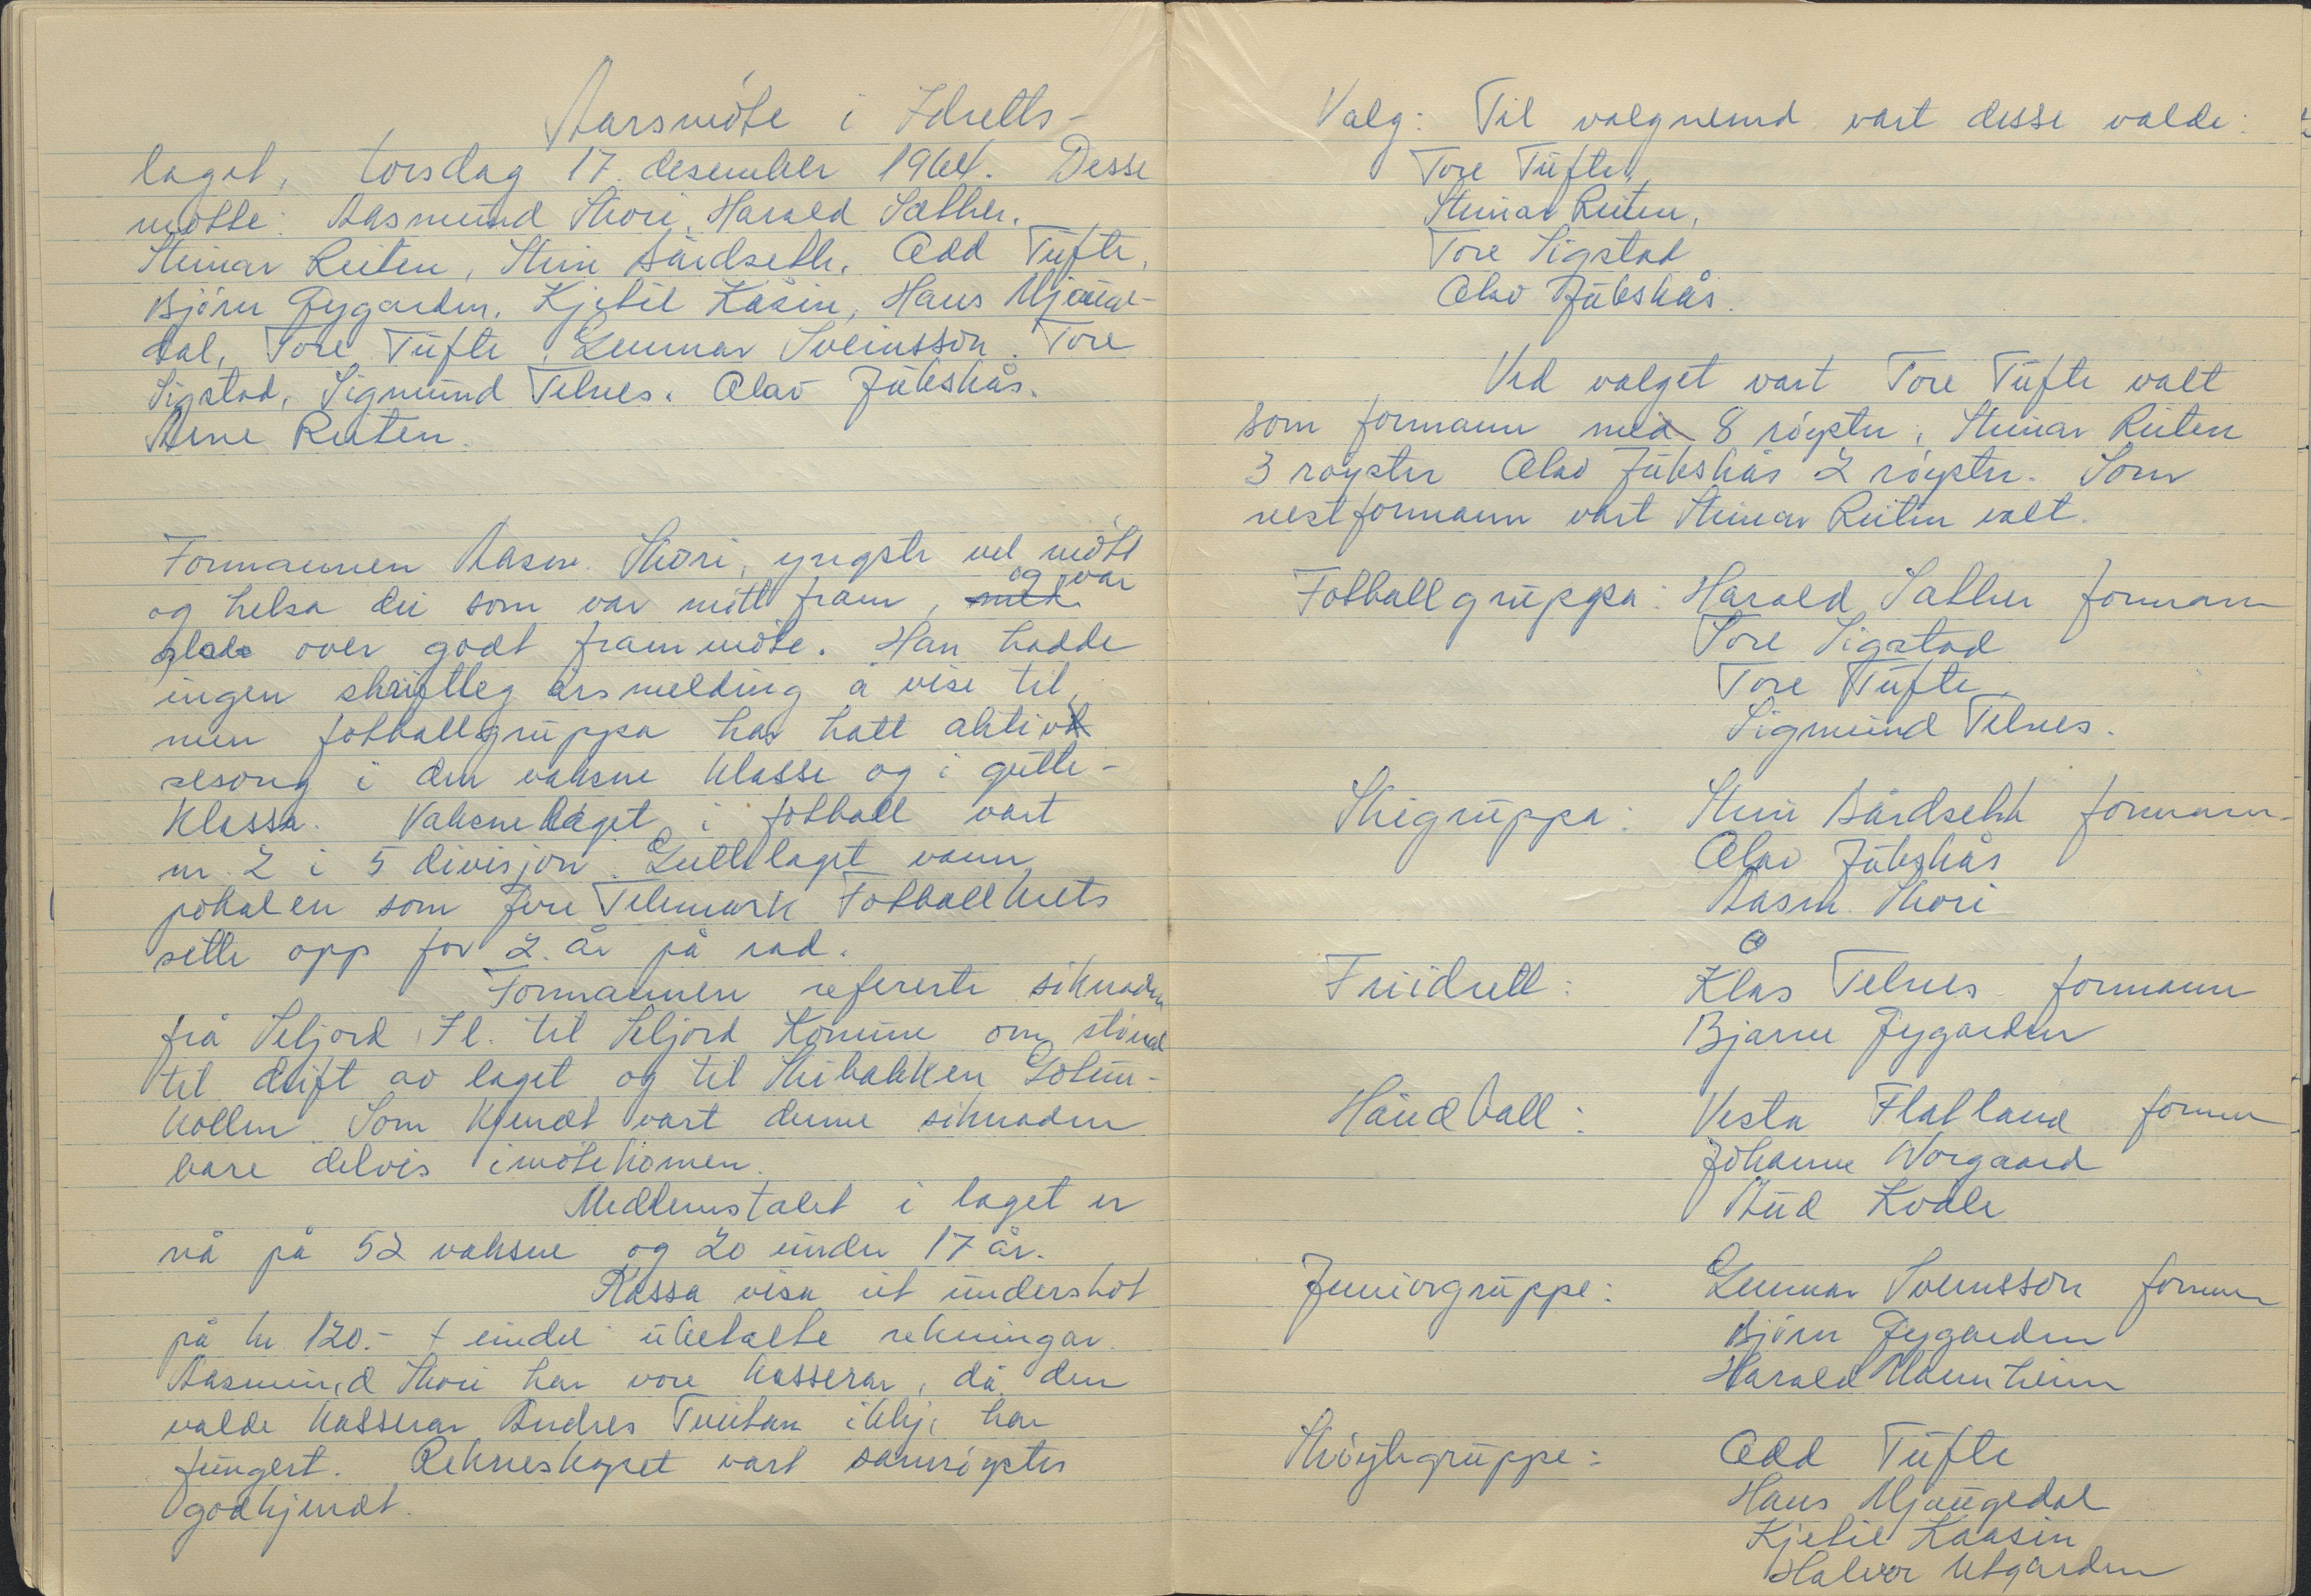 Aarsmöte i Idretts-
laget, torsdag 17. desember 1964. Desse
møtte: Aasmund Skori, Harald Sæther,
Steinar Reiten, Stein Bårdseth, Odd Tufte,
Björn Bygarden, Kjetil Kåsin, Hans Mjaugedal,
dal, Tore Tufte, Gunnar Sveinsson, Tore
Sigstad, Sigmund Telnes, Olav Jukskås.
Arne Reiten.
Formannen Aasm. Skori, yngste vel möte
og helsa dei som var mött fram, og var
glad over godt frammöte. Han hadde
ingen skriftleg årsmelding å vise til,
men fotballgruppa har hatt aktiv
sesong i den vaksne klasse og i gutte-
klassa. Vaksnelaget i fotball vart
nr. 2 i 5 divisjon. Guttelaget vann
pokalen som Jvre Telemark Fotballkrets
sette opp for 2. år på rad.
Formannen refererte söknaden
frå Seljord I.l. til Seljord Komune om stönad
til drift av laget og til Skibakken Gotun-
kollen. Som kjendt vart denne söknaden
bare delvis imötekomen.
Medlemstalet i laget er
nå på 52 vaksne og 20 under 17 år.
Kassa visa eit underskot
på kr 120.- + eindel ubetalte rekningar.
Aasmund Skori har vore kasserar, då den
valde kasserar Andres Tveitan ikkje har
fungert. Rekneskapet vart samröystes
godkjendt.
Valg: Til valgnemd vart desse valde:
Tore Tufte,
Steinar Reiten,
Tore Sigstad
Olav Jukskås.
Ved valget vart Tore Tufte valt
som formann med 8 röyster, Steinar Reiten
3 röyster Olav Jukskås 2 röyster. Som
nestformann vart Steinar Reiten valt.
Fotballgruppa: Harald Sæther formann
Tore Sigstad
Tore Tufte,
Sigmund Telnes.
Skigruppa: Stein Bårdseth formann
Olav Jukskås
Aasm. Skori
Friidrett: Olas Telnes formann
Bjarne Bygarden
Håndball: Vesla Flatland formann
Johanne Norgaard
Aud Kvåle
Juniorgruppe: Gunnar Sveinsson formann
Björn Bygarden
Harald Mannheim
Sköytegruppe: Odd Tufte
Hans Mjaugedal
Kjetil Kaasin
Halvor Utgarden